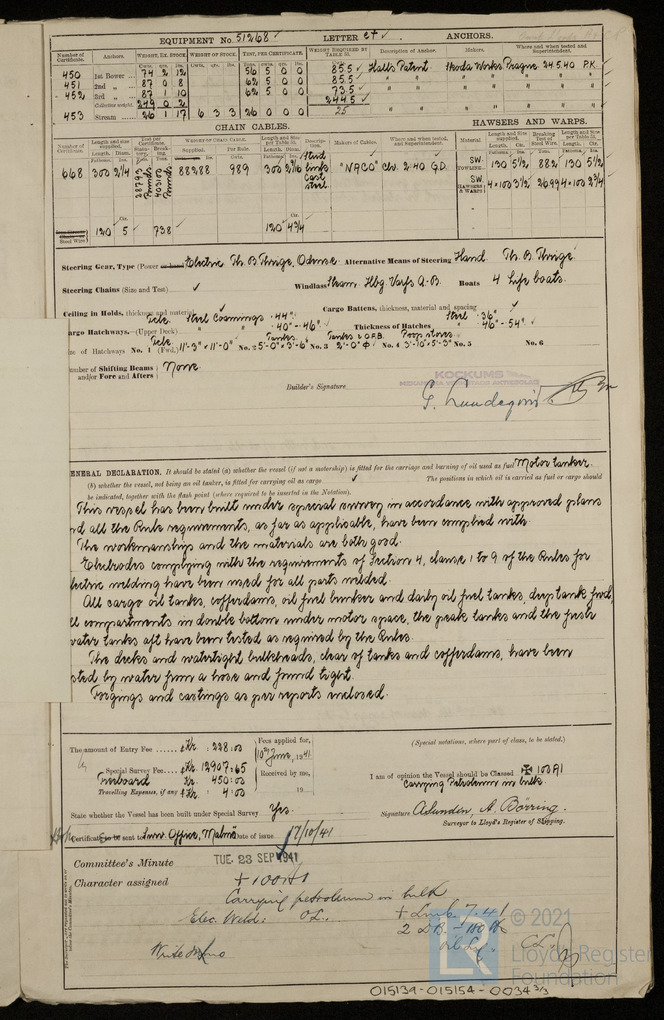 EQUIPMENT No. 51268 LETTER et ANCHORS.
Number of Certificate. Anchors. WEIGHT, EX. STOCK WEIGHT OF STOCK. TEST, PER CERTIFICATE. WEIGHT REQUIRED BY TABLE 31. Description of Anchor. Makers. Where and when tested and Superintendent.
450 1st Bower 74 2 12 56 5 0 0 85.5 Hall's Patent Skoda Works Prague 24.5.40 P.K
451 2nd " 87 0 8 62 5 0 0 85.5 " " " "
452 3rd " 87 1 10 62 5 0 0 73.5 " " " "
Collective weight 249 0 2 244.5
453 Stream 26 1 17 6 3 3 26 0 0 0 25 " " " "
CHAIN CABLES. HAWSERS AND WARPS.
Number of Certificate. Length and size supplied. Test per Certificate. WEIGHT OF CHAIN CABLE. Length and Size per Table 31. Description. Makers of Cables. Where and when tested, and Superintendent. Material Length and Size supplied. Breaking Test of Steel Wire. Length and Size per Table 31.
Supplied. Per Rule.
668 300 2 1/4 88288 989 300 2 1/16 Stud links cast steel "NACO" Chr. 2.40 G.D. S.W. TOWLINE 130 5 1/2 882 130 5 1/2
S.W. HAWSERS & WARPS 4×100 3 1/2 26994×100 2 3/4
Steel Wire 120 5 738 120 4 3/4
Steering Gear, Type (Power or hand) Electric Th. B. Thrige, Odense. Alternative Means of Steering Hand. Th. B. Thrige.
Steering Chains (Size and Test) Windlass Steam. Hbg. Varfs A.-B. Boats 4 Life boats.
Ceiling in Holds, thickness and material Cargo Battens, thickness, material and spacing
Cargo Hatchways. (Upper Deck) Steel Coamings 44" 40"-46" Thickness of Hatches Steel 36" 46"-54"
of Hatchways No. 1 (Fwd.) 11'-3" × 11'-0" No. 2 Tanks 5'-0" × 3'-6" No. 3 2'-0" Φ No. 4 Poop stores 3'-10" × 5'-3" No. 5 No. 6
Number of Shifting Beams and/or Fore and Afters None
Builder's Signature KOCKUMS
GENERAL DECLARATION. It should be stated (a) whether the vessel (if not a motorship) is fitted for the carriage and burning of oil used as fuel Motor tanker.
(b) whether the vessel, not being an oil tanker, is fitted for carrying oil as cargo The positions in which oil is carried as fuel or cargo should
be indicated, together with the flash point (where required to be inserted in the Notation).
This vessel has been built under special survey in accordance with approved plans
nd all the Rule requirements, as far as applicable, have been complied with
The workmanship and the materials are both good.
Electrodes complying with the requirements of Section 4, clause 1 to 9 of the Rules for
lectric welding have been used for all parts welded.
All cargo oil tanks, cofferdams, oil fuel bunker and daily oil fuel tanks, deep tank fwd
ll compartments in double bottom under motor space, the peak tanks and the fresh
water tanks aft have been tested as required by the Rules.
The decks and watertight bulkheads, clear of tanks and cofferdams, have been
sted by water from a hose and found tight.
Forgings and castings as per reports inclosed.
The amount of Entry Fee ...... Kr. 228:00 Fees applied for, 10th June, 1941 (Special notations, where part of class, to be stated.)
Special Survey Fee .... Kr. 12907:65 Received by me,
Freeboard Kr. 450:00 19 I am of opinion the Vessel should be Classed ✠ 100 A1
Travelling Expenses, if any Kr. 4:00 Carrying Petroleum in bulk
State whether the Vessel has been built under Special Survey Yes. Signature
Surveyor to Lloyd's Register of Shipping.
Certificate to be sent to Surv. Office, Malmö Date of issue 17/10/41
Committee's Minute TUE. 23 SEP 1941
Character assigned + 100A1
Carrying petroleum in bulk
Elec. Weld: O.L. + L.M.C. 7.41
2 D.B. - 180 lb
Oil Eng. C.L.
© 2021
Lloyd's Register
Foundation
015139-015154-0034 3/3